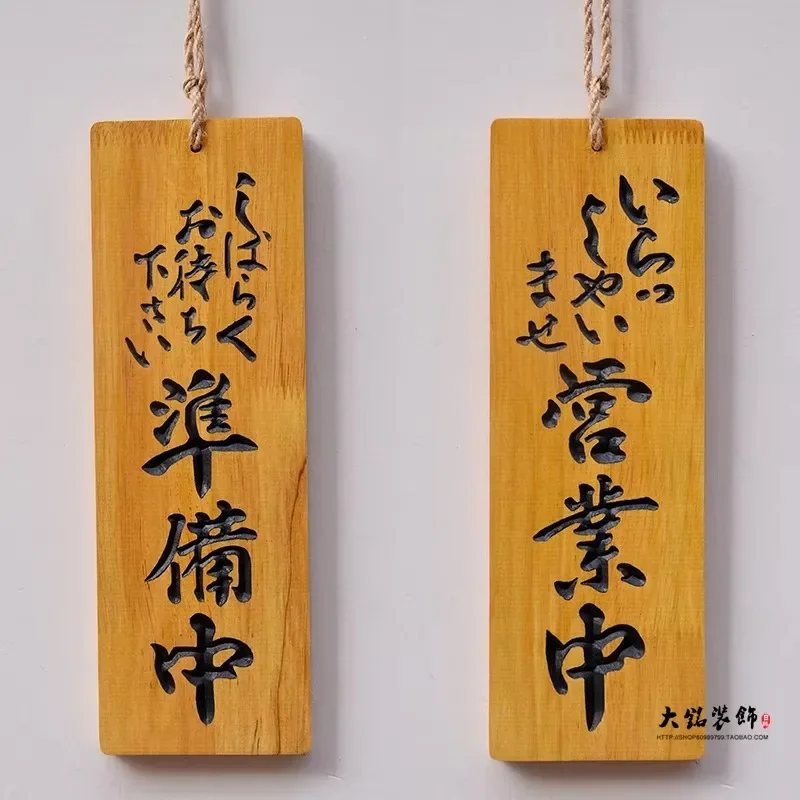 しばらく
お待ち
下さい
準備中
いらっ
しゃい
ませ
営業中
大铭装飾
HTTP://SHOP60989799.TAOBAO.COM